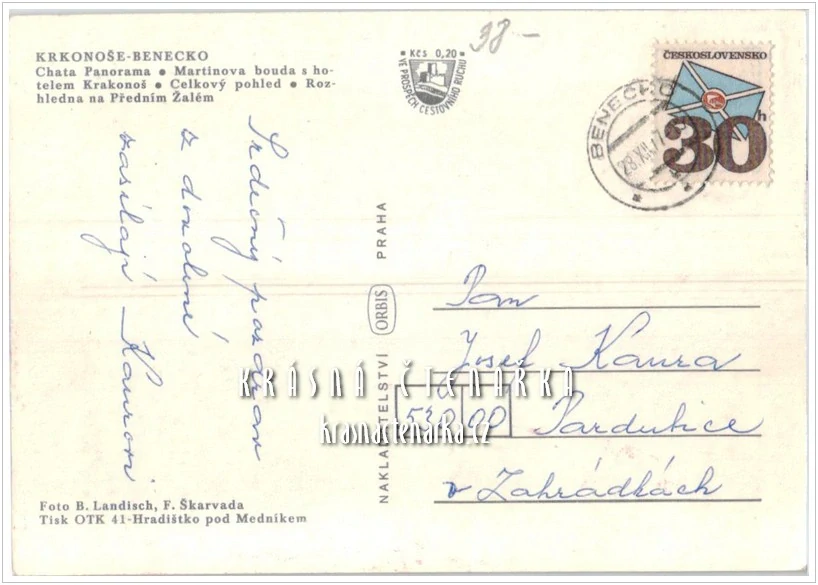 KRKONOŠE-BENECKO
Chata Panorama • Martinova bouda s ho-
telem Krakonoš • Celkový pohled • Roz-
hledna na Předním Žalém
Kčs 0,20
VE PROSPĚCH CESTOVNÍHO RUCHU
38 –
ČESKOSLOVENSKO
30h
BENECKO
28.XII.
Srdečný pozdrav
z dovolené
zasílají Kaurovi
NAKLADATELSTVÍ ORBIS PRAHA
Pan
Josef Kaura
530 00 Pardubice
v Zahrádkách
KRÁSNÁ ČTENÁRKA
krasnactenarka.cz
Foto B. Landisch, F. Škarvada
Tisk OTK 41-Hradištko pod Medníkem